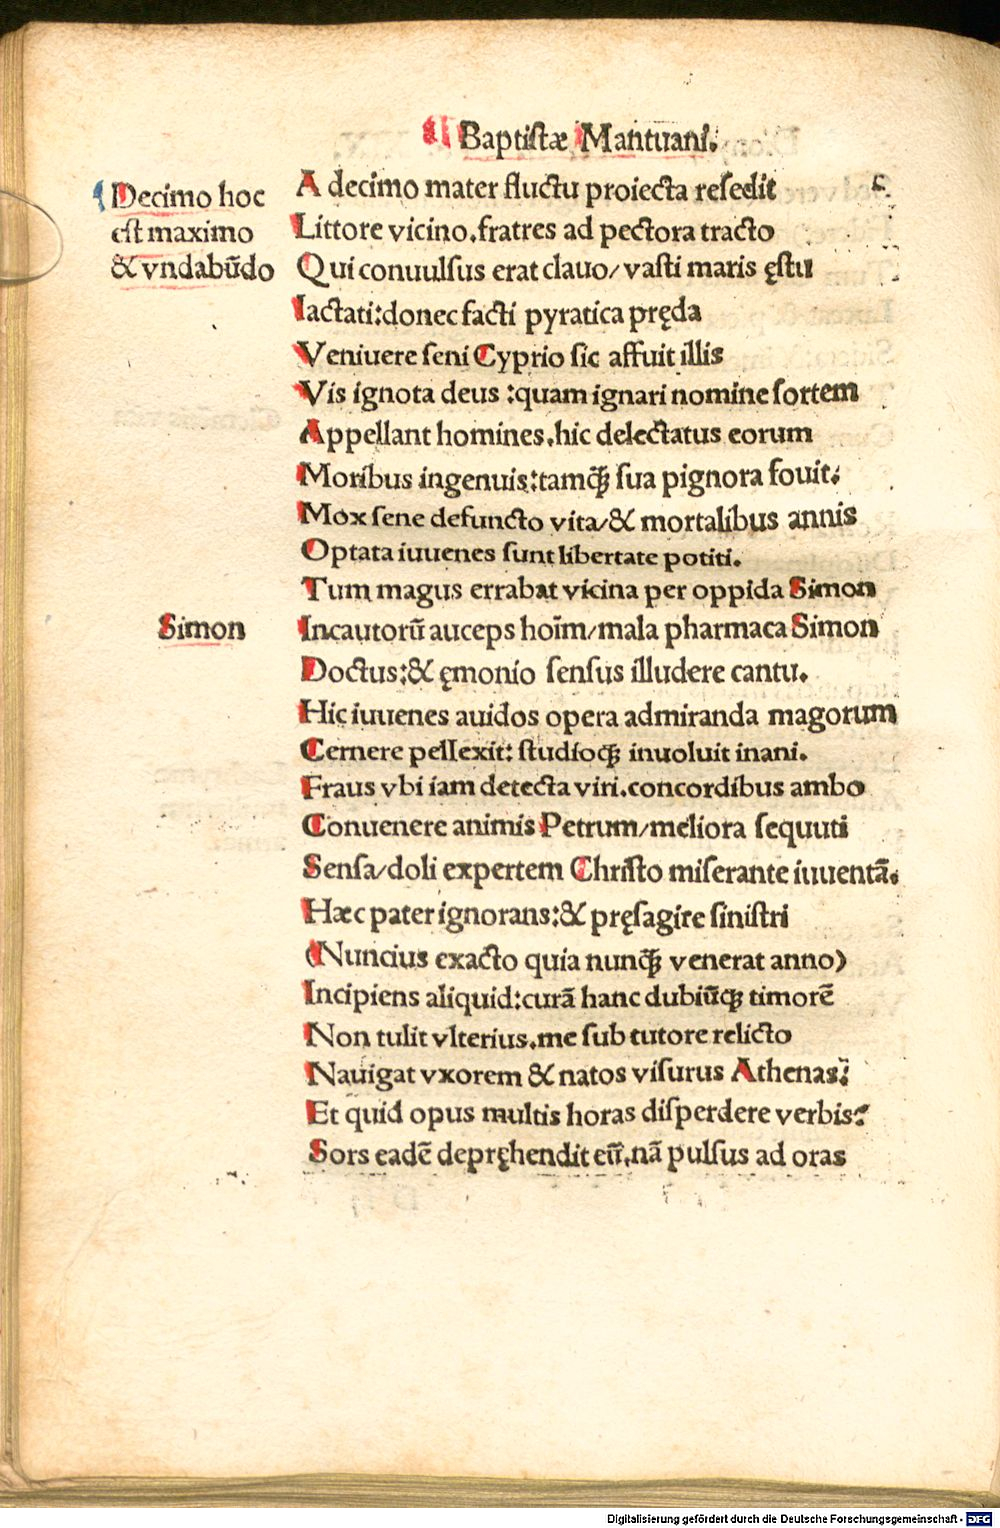 Baptistæ Mantuani.
Decimo hoc
est maximo
& vndabūdo
A decimo mater fluctu proiecta resedit
Littore vicino.fratres ad pectora tracto
Qui conuulsus erat clauo/ vasti maris ęstu
Iactati:donec facti pyratica pręda
Veniuere seni Cyprio sic affuit illis
Vis ignota deus :quam ignari nomine sortem
Appellant homines.hic delectatus eorum
Moribus ingenuis:tamꝙ sua pignora fouit.
Mox sene defuncto vita/& mortalibus annis
Optata iuuenes sunt libertate potiti.
Tum magus errabat vicina per oppida Simon
Simon
Incautorū auceps hoīm/mala pharmaca Simon
Doctus:& ęmonio sensus illudere cantu.
Hic iuuenes auidos opera admiranda magorum
Cernere pellexit: studioꝙ inuoluit inani.
Fraus vbi iam detecta viri.concordibus ambo
Conuenere animis Petrum/meliora sequuti
Sensa/doli expertem Christo miserante iuuentā.
Hæc pater ignorans:& pręsagire sinistri
(Nuncius exacto quia nunꝙ venerat anno)
Incipiens aliquid:curā hanc dubiūꝙ timorē
Non tulit vlterius.me sub tutore relicto
Nauigat vxorem & natos visurus Athenas:
Et quid opus multis horas disperdere verbis?
Sors eadē depręhendit eū.nā pulsus ad oras
Digitalisierung gefördert durch die Deutsche Forschungsgemeinschaft - DFG